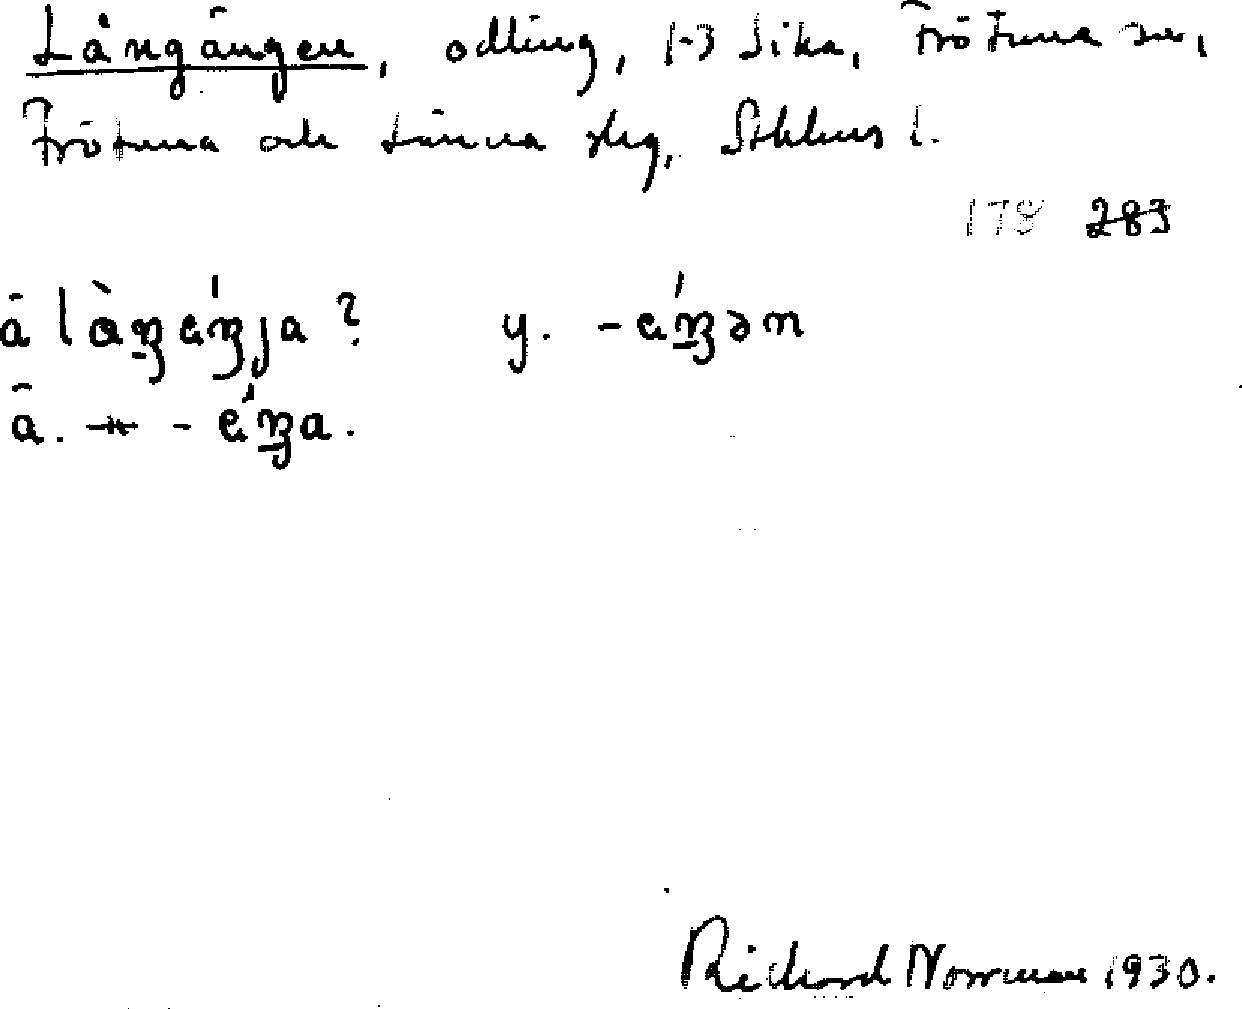 Långängen, odling, 1-3 Sika, Frötuna sn,
Frötuna och Länna skg, Sthlms l.
178 283
ā làŋéŋja? y. -éŋən
ā. -"- -éŋa.
Richard Norrman 1930.